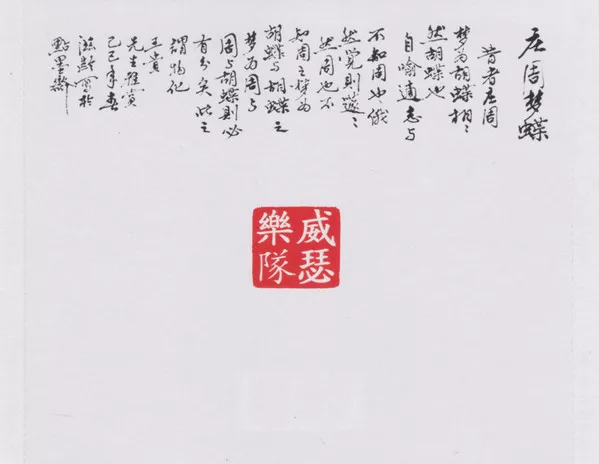 庄周梦蝶
昔者庄周
梦为胡蝶栩〻
然胡蝶也
自喻適志与
不知周也俄
然覺則蘧〻
然周也不
知周之梦为
胡蝶与胡蝶之
梦为周与
周与胡蝶則必
有分矣此之
謂物化
先生雅赏
己巳年春
寫於
點墨齋
威瑟
樂隊